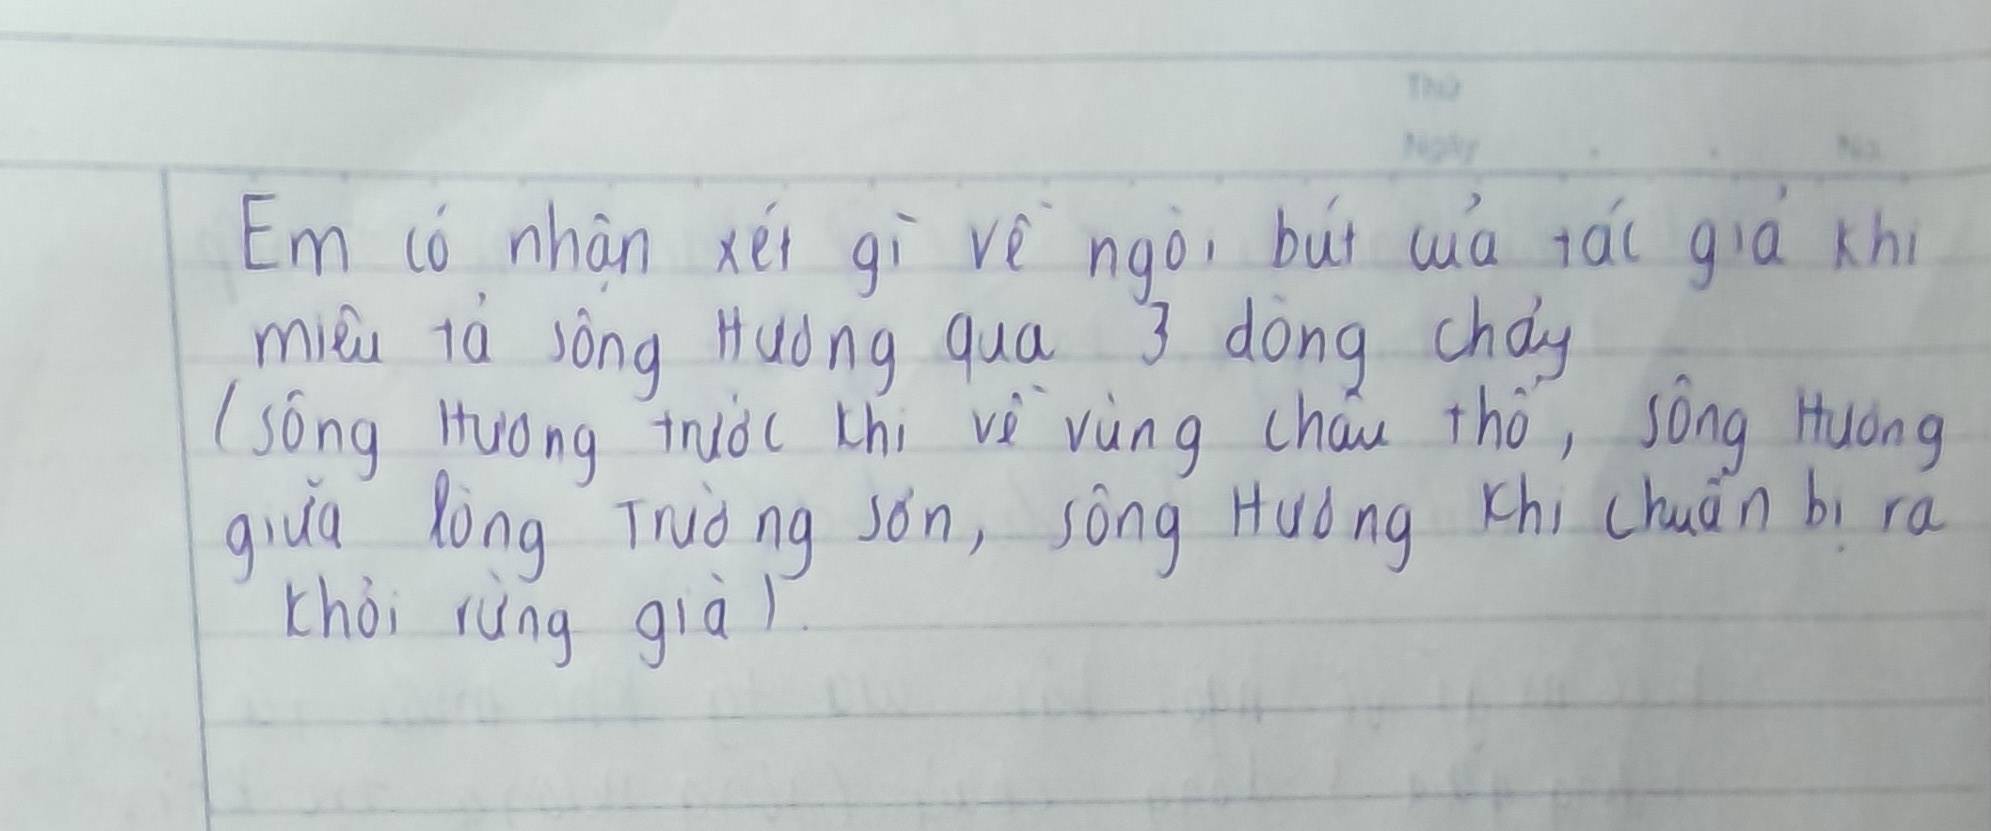 Thứ
Ngày . . No.
Em có nhận xét gì về ngòi bút của tác giả khi
miêu tả sông Hương qua 3 dòng chảy
(sông Hương trước khi về vùng châu thổ, sông Hương
giữa lòng Trường Sơn, sông Hương khi chuẩn bị ra
khỏi rừng già).